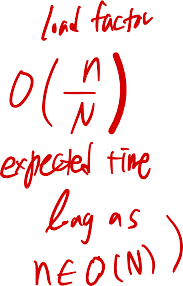 load factor
O(n/N)
expected time
long as
n ∈ O(N))